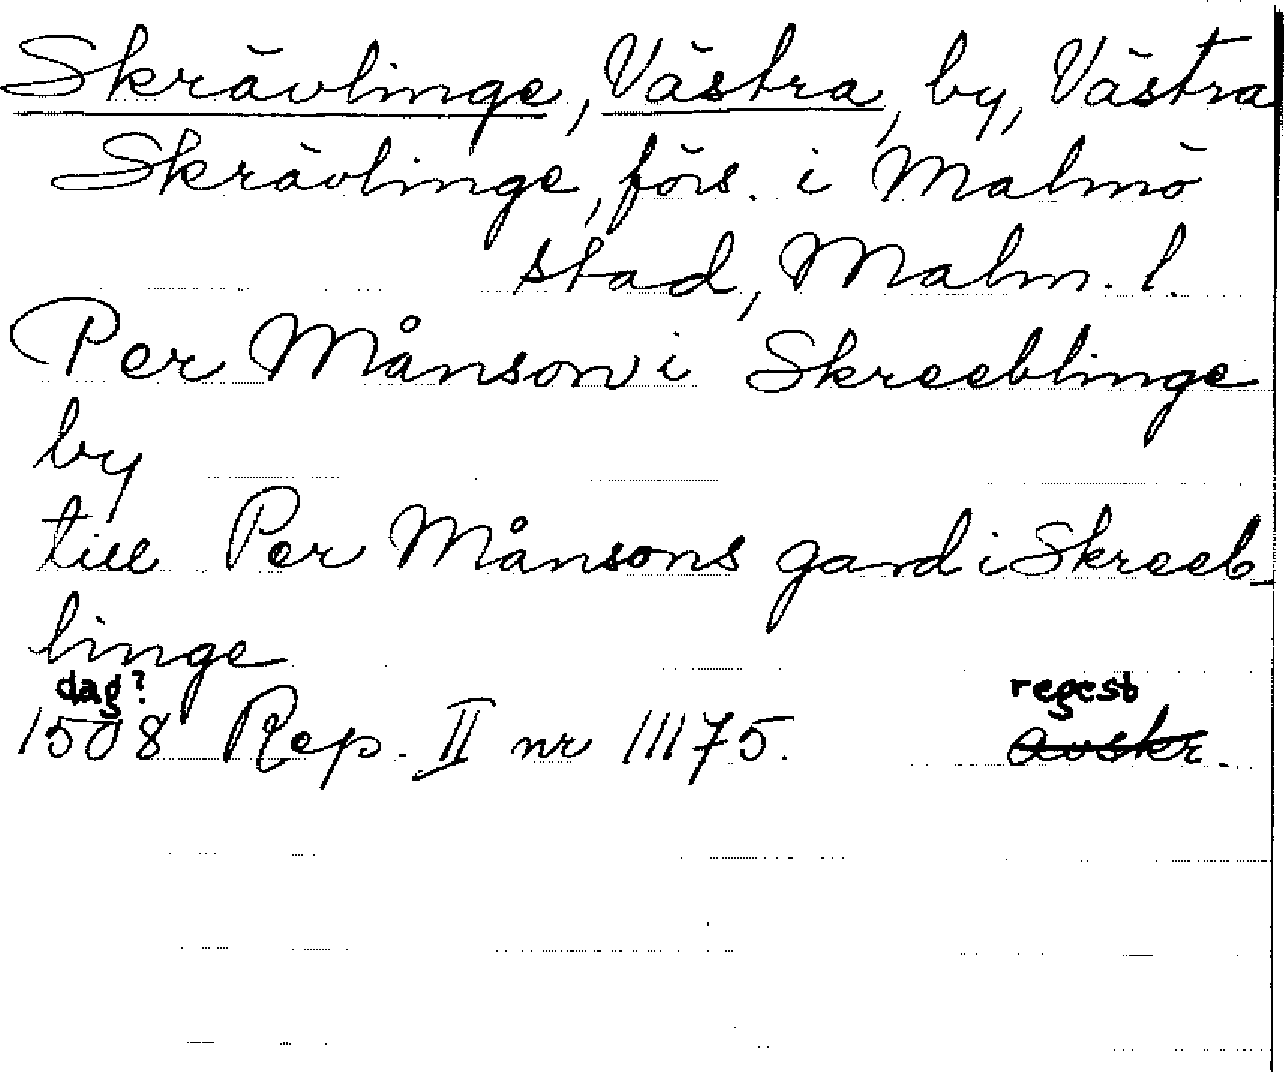 Skrävlinge, Västra, by, Västra
Skrävlinge, förs. i Malmö
stad, Malm. l.
Per Månson i Skreeblinge
by
till Per Månsons gard i Skreeb-
linge
dag? regest
1508 Rep. II nr 11175. avskr.